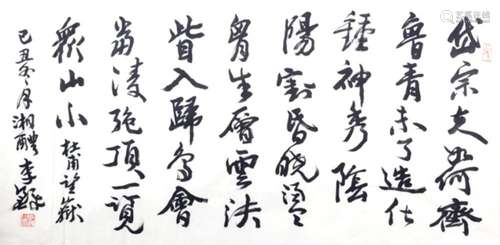 岱宗夫如何齊
魯青未了造化
鍾神秀陰
陽割昏曉盪
胷生層雲決
眥入歸鳥會
當凌絶頂一覽
衆山小 杜甫望嶽
己丑冬月湘醴李